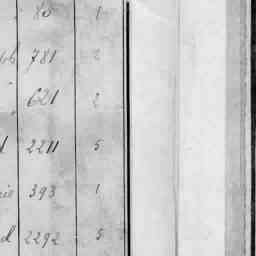 80 1
781 2
621 2
2211 5
393 1
2292 5